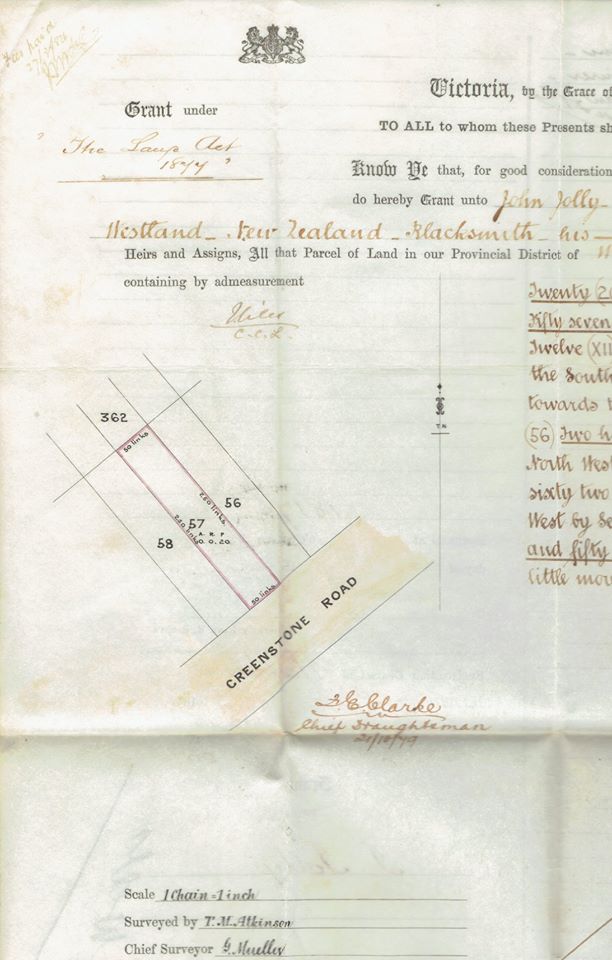 Fees paid
Victoria, by the Grace of
Grant under
TO ALL to whom these Presents sh
" The Land Act
1877 "
Know Ye that, for good consideration
do hereby Grant unto John Jolly -
Westland - New Zealand - Blacksmith - his -
Heirs and Assigns, All that Parcel of Land in our Provincial District of
containing by admeasurement
C.C.L.
Twenty (20
Fifty seven
Twelve (XII
the South
towards t
(56) Two h
North Wes
sixty two
West by Se
and fifty
little mor
T.N.
362
50 links
250 links
56
57
250 links
A. R. P.
0. 0. 20.
58
50 links
GREENSTONE ROAD
F E Clarke
Chief Draughtsman
21/10/79
Scale 1 Chain = 1 inch
Surveyed by T. M. Atkinson
Chief Surveyor G. Mueller